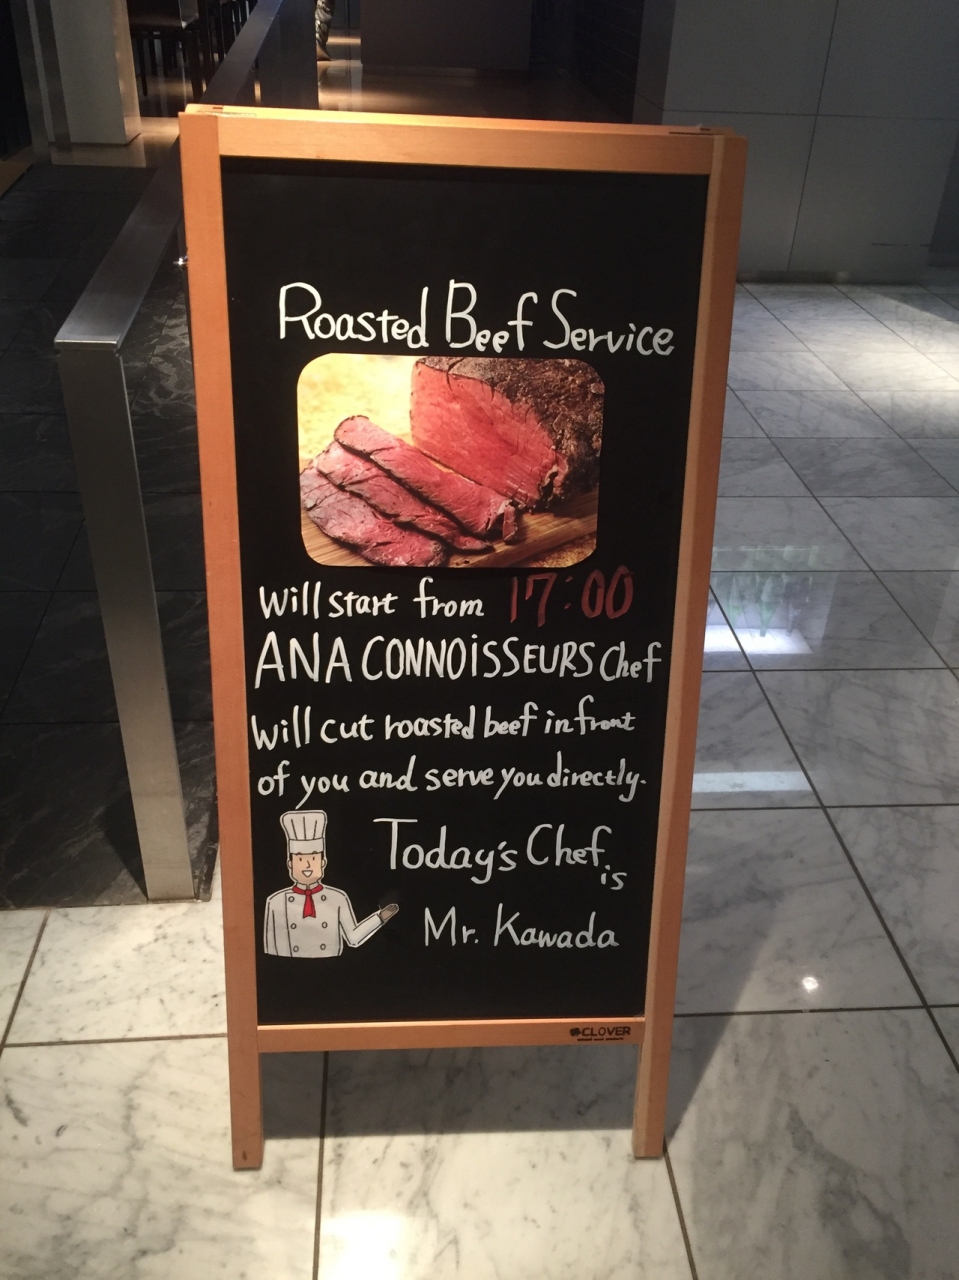 Roasted Beef Service
Will start from 17:00
ANA CONNOISSEURS Chef
will cut roasted beef in front
of you and serve you directly.
Today's Chef is
Mr. Kawada
CLOVER